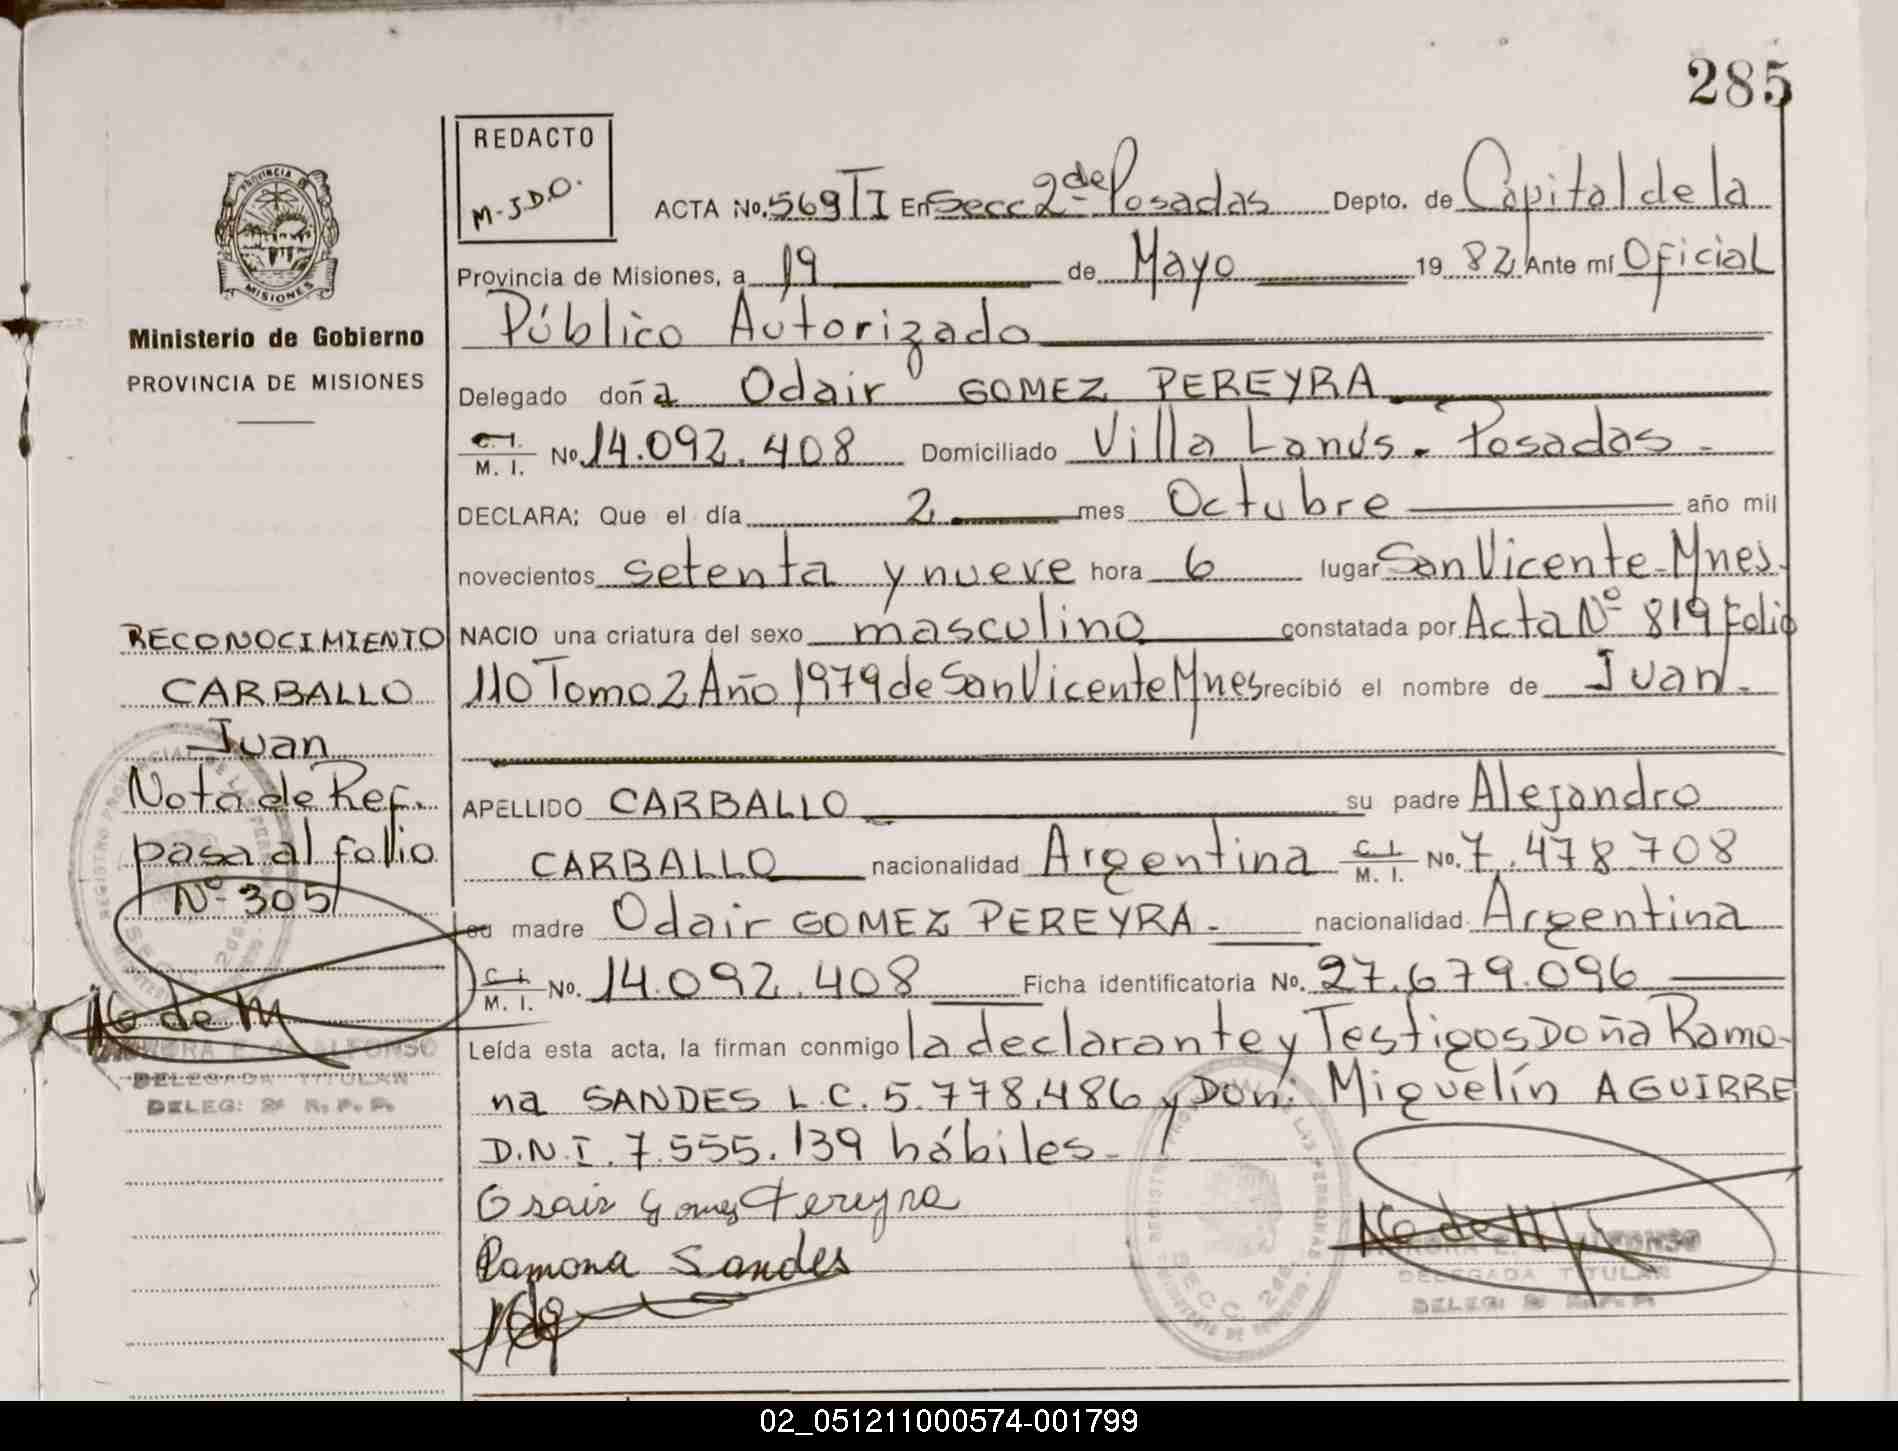 285
REDACTO
M-J.D.O.
PROVINCIA
MISIONES
Ministerio de Gobierno
PROVINCIA DE MISIONES
ACTA No. 569 TI En Secc 2da de Posadas Depto. de Capital de la
Provincia de Misiones, a 19 de Mayo 19 82 Ante mí Oficial
Público Autorizado
Delegado doña Odair GOMEZ PEREYRA
C.I. / M. I. No. 14.092.408 Domiciliado Villa Lanús - Posadas -
DECLARA: Que el día 2 mes Octubre año mil
novecientos setenta y nueve hora 6 lugar San Vicente - Mnes.
NACIO una criatura del sexo masculino constatada por Acta Nº 819 Folio
110 Tomo 2 Año 1979 de San Vicente Mnes recibió el nombre de Juan.
APELLIDO CARBALLO su padre Alejandro
CARBALLO nacionalidad Argentina C.I. / M. I. No. 7.478.708
su madre Odair GOMEZ PEREYRA. nacionalidad Argentina
C.I. / M. I. No. 14.092.408 Ficha identificatoria No. 27.679.096
Leída esta acta, la firman conmigo la declarante y Testigos Doña Ramo-
na SANDES L.C. 5.778.486 y Don: Miguelín AGUIRRE
D.N.I. 7.555.139 hábiles.
Gomez Pereyra
Ramona Sandes
RECONOCIMIENTO
CARBALLO
Juan
Nota de Ref.
pasa al folio
Nº 305
ALFONSO
DELEGADA TITULAR
DELEG: 2ª R. P. P.
ALFONSO
DELEGADA TITULAR
DELEG: 2ª R. P. P.
02_051211000574-001799